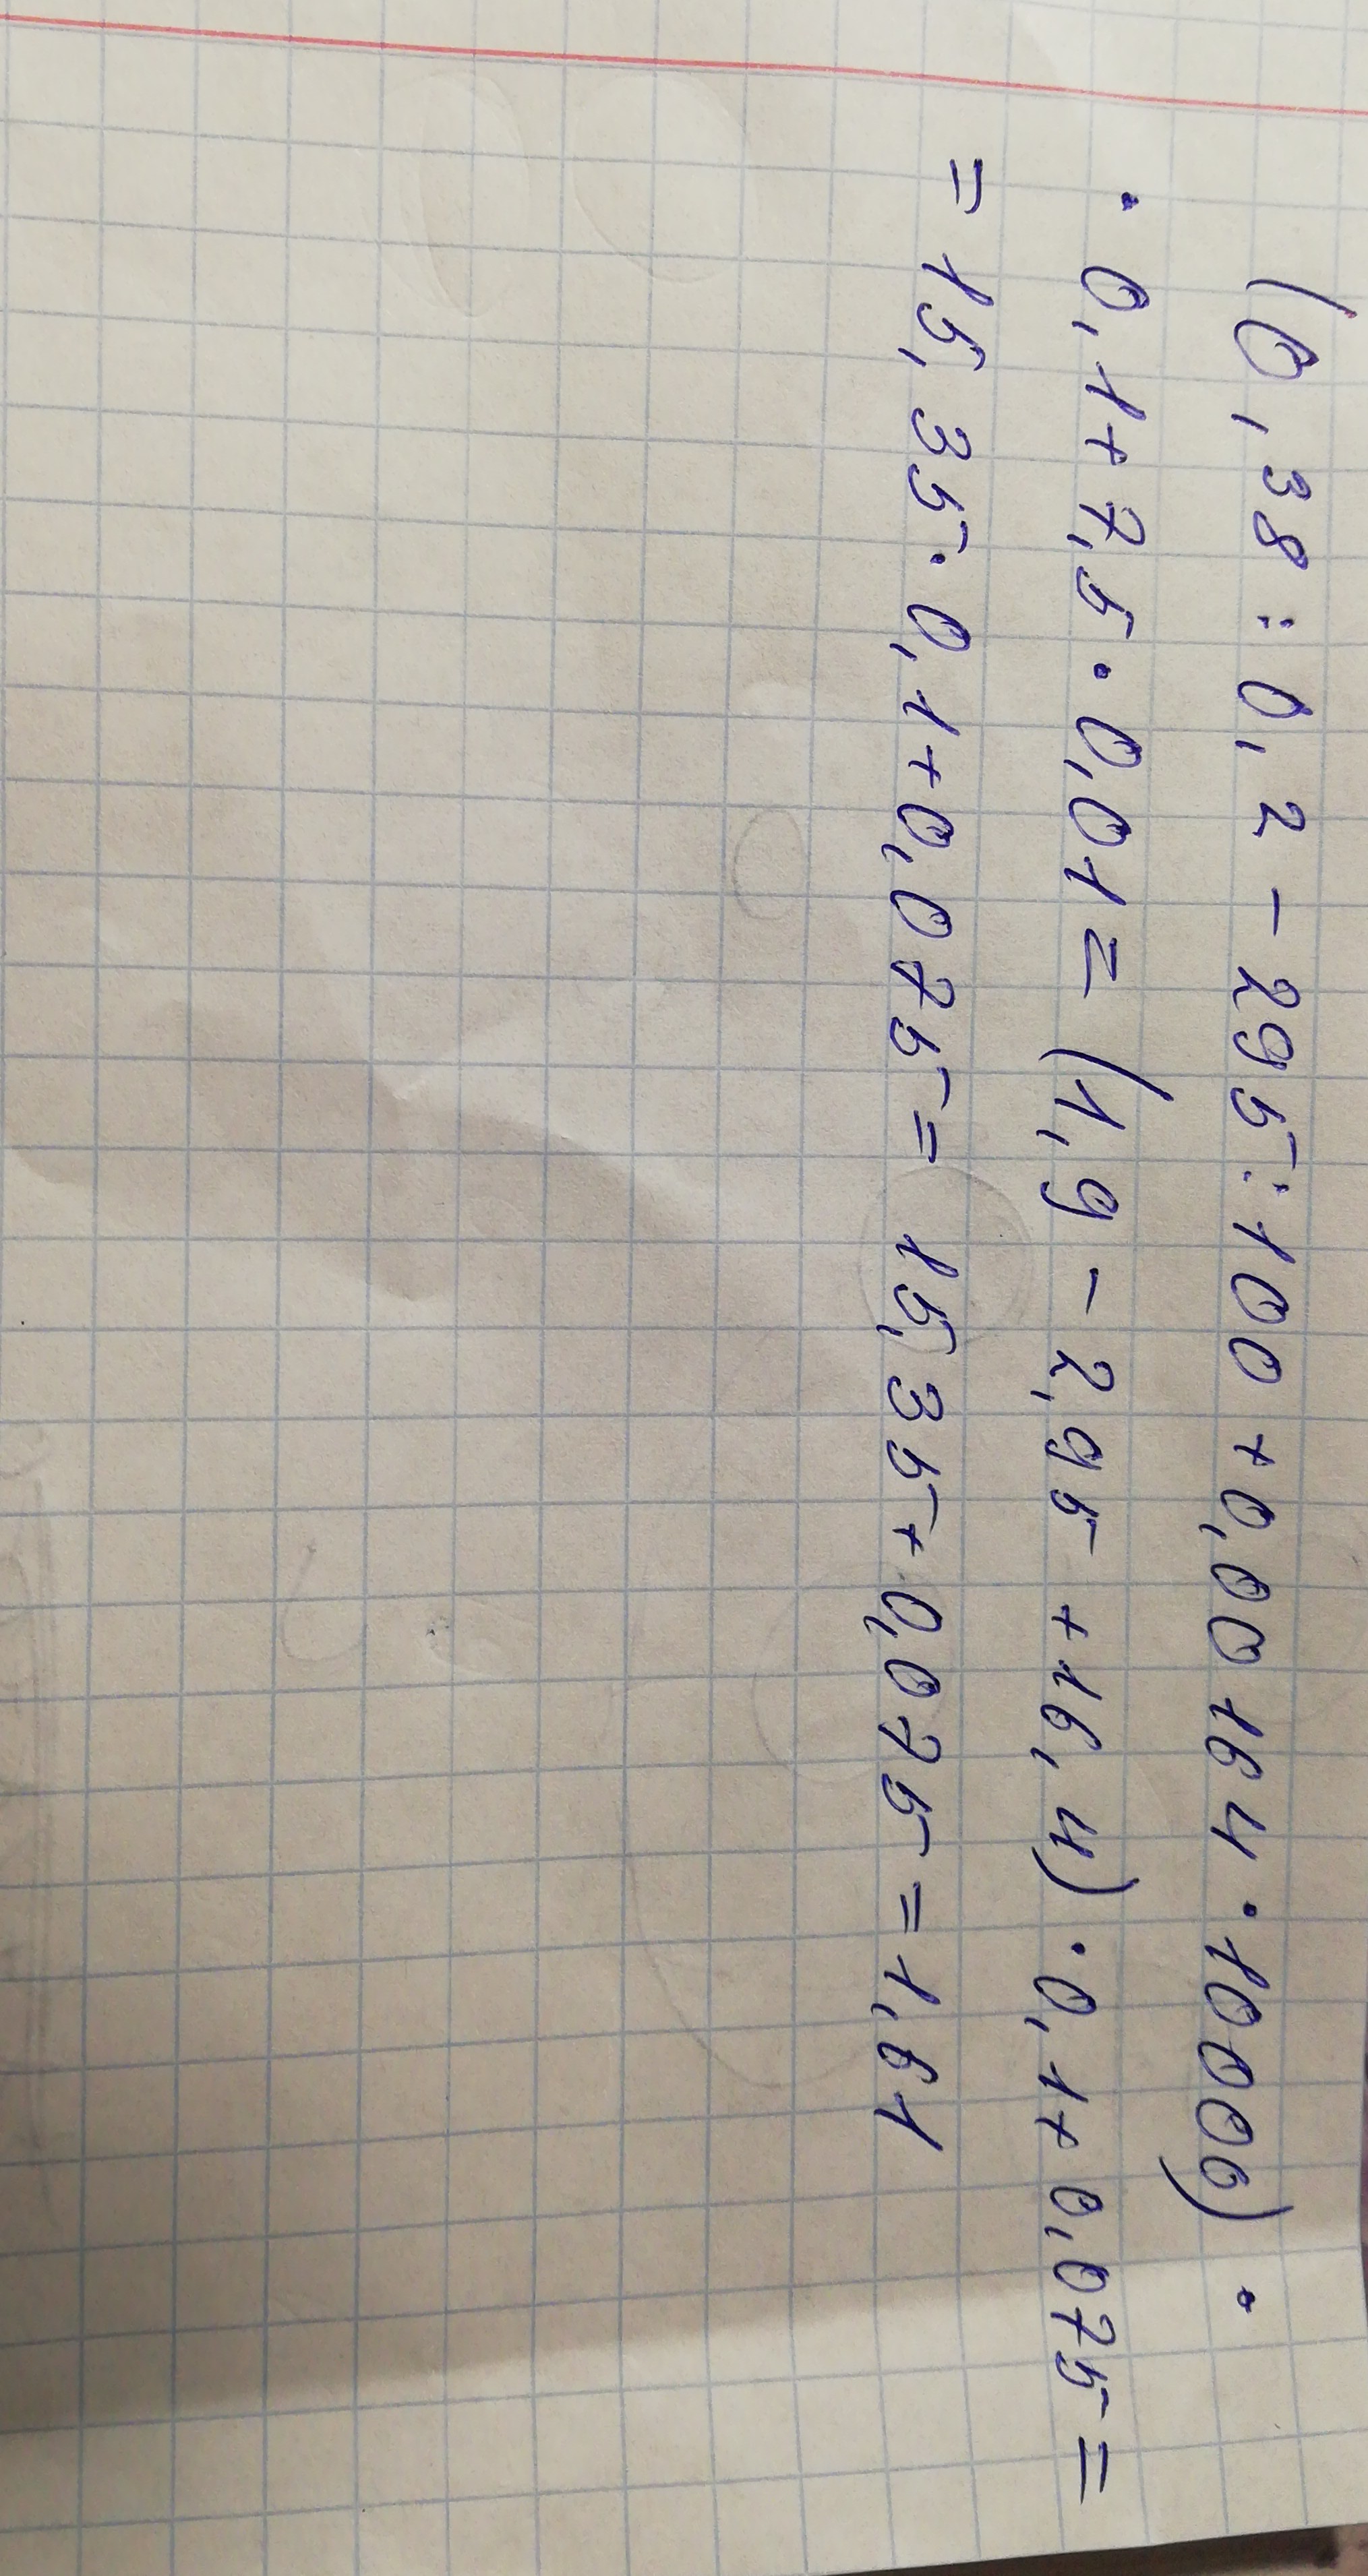 (0,38 : 0,2 - 295 : 100 + 0,00164 · 10000) ·
· 0,1 + 7,5 · 0,01 = (1,9 - 2,95 + 16,4) · 0,1 + 0,075 =
= 15,35 · 0,1 + 0,075 = 15,35 + 0,075 = 1,61